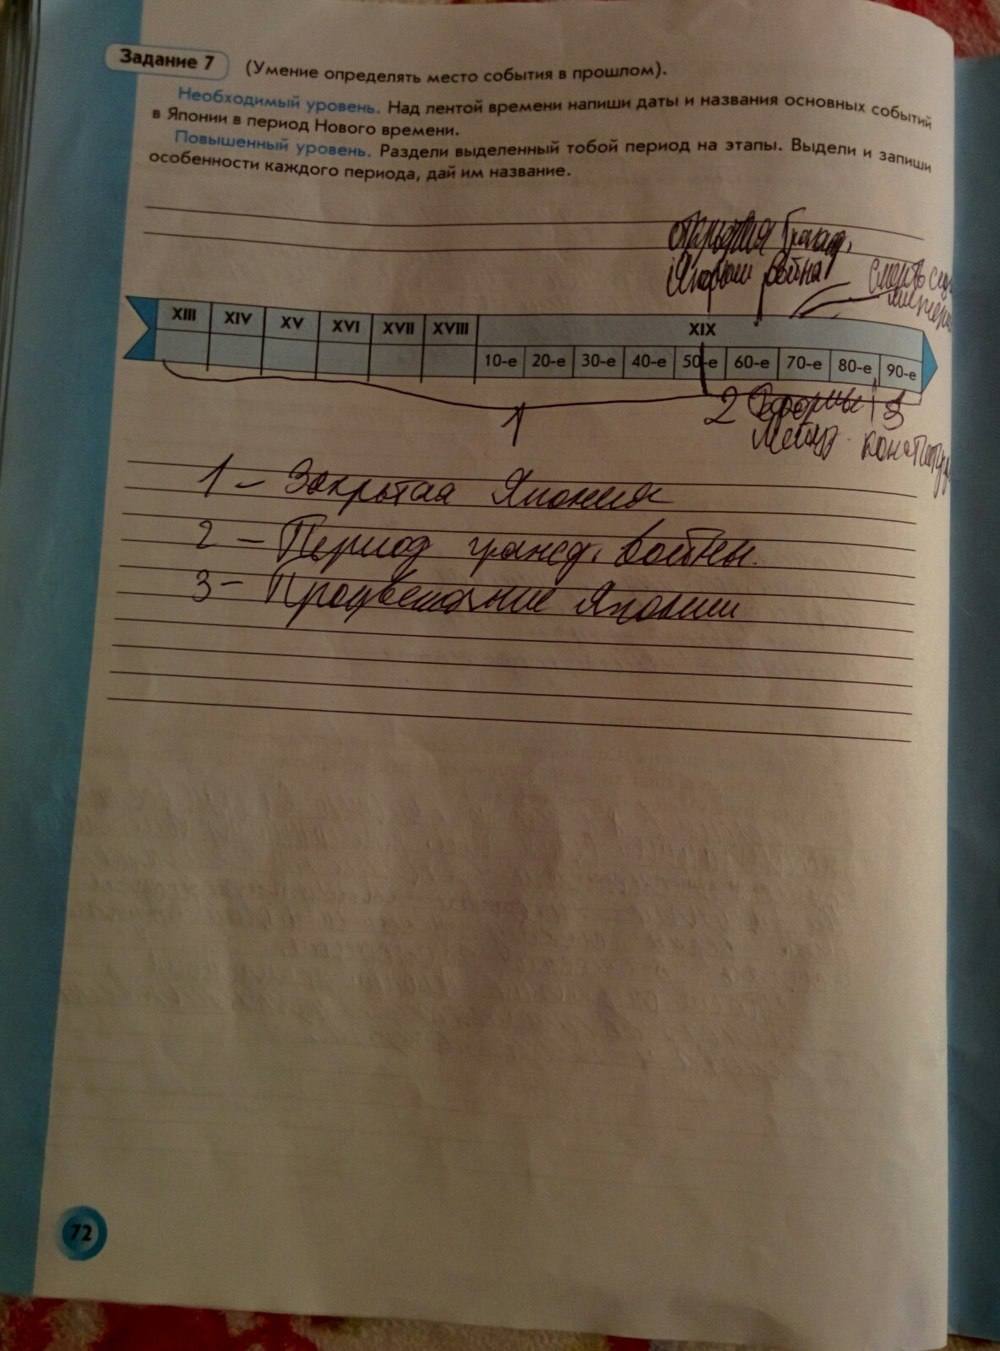 Задание 7
(Умение определять место события в прошлом).
Необходимый уровень. Над лентой времени напиши даты и названия основных событий
в Японии в период Нового времени.
Повышенный уровень. Раздели выделенный тобой период на этапы. Выдели и запиши
особенности каждого периода, дай им название.
Гражд.
Японии война
смерть
XIII XIV XV XVI XVII XVIII XIX
10-е 20-е 30-е 40-е 50-е 60-е 70-е 80-е 90-е
1 2 Реформы 3
Мейдз.
1 - Закрытая Япония
2 - Период гражд. войны.
3 - Процветание Японии
72